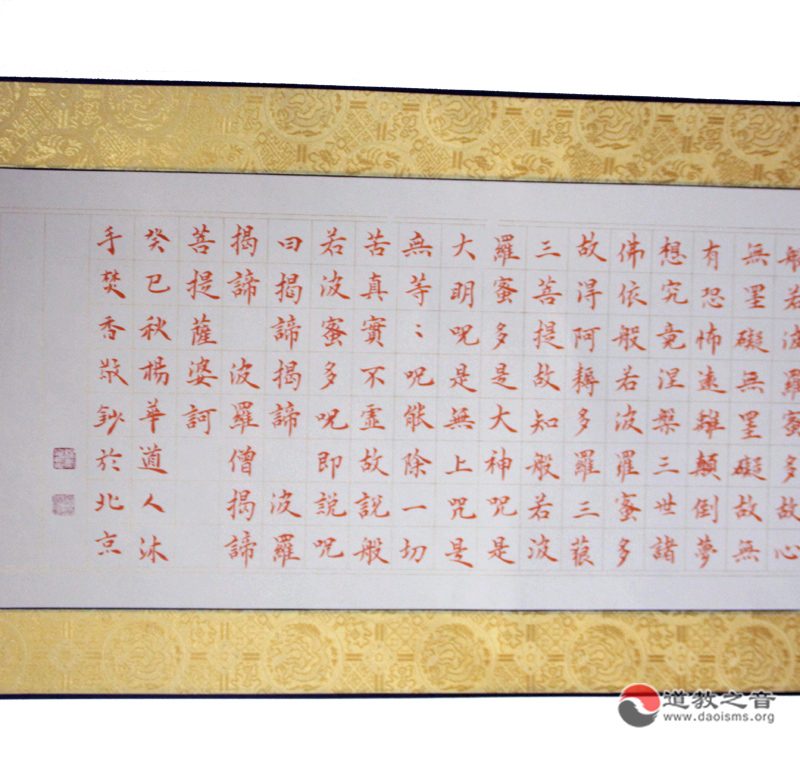 般若波羅蜜多故心
無罣礙無罣礙故無
有恐怖遠離顛倒夢
想究竟涅槃三世諸
佛依般若波羅蜜多
故得阿耨多羅三藐
三菩提故知般若波
羅蜜多是大神呪是
大明呪是無上咒是
無等〻呪能除一切
苦真實不虛故說般
若波蜜多呪即說呪
曰揭諦揭諦 波羅
揭諦 波羅僧揭諦
菩提薩婆訶
癸巳秋楊華道人沐
手焚香敬鈔於北京
道教之音
www.daoisms.org